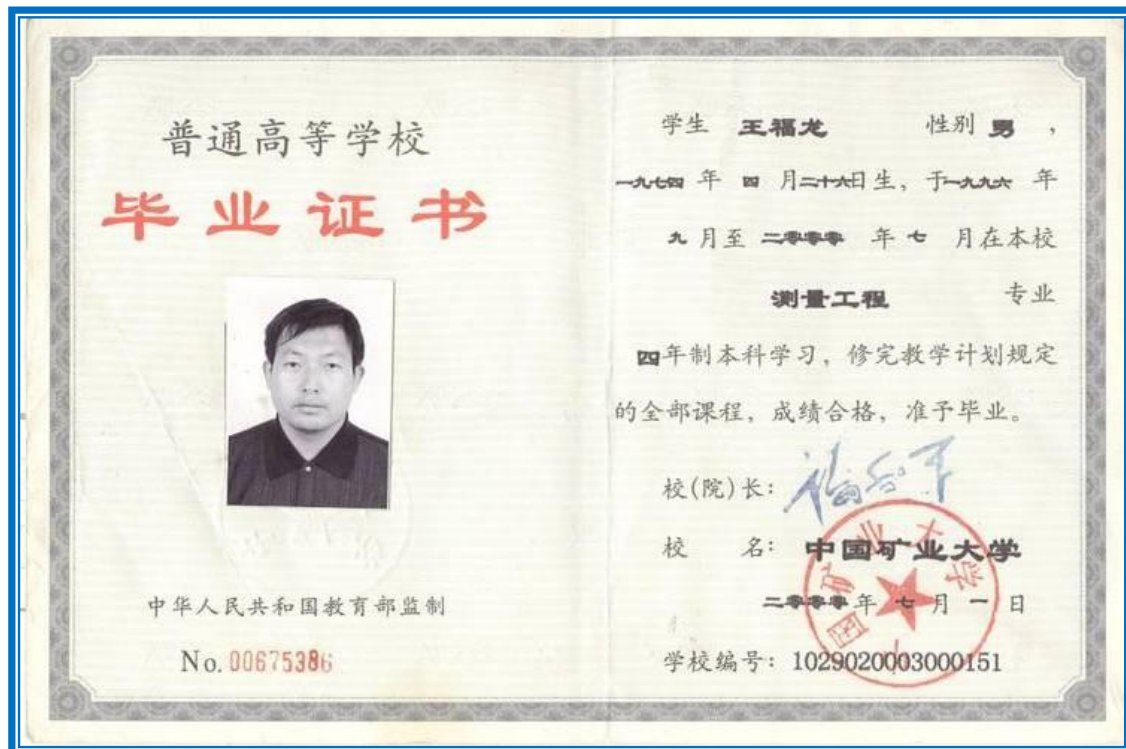 普通高等学校
毕业证书
中华人民共和国教育部监制
No. 00675386
学生 王福龙 性别 男 ,
一九七四 年 四 月二十六日生, 于一九九六 年
九 月至 二零零零 年 七 月在本校
测量工程 专业
四年制本科学习, 修完教学计划规定
的全部课程, 成绩合格, 准予毕业。
校(院)长:
校 名: 中国矿业大学
二零零零年 七 月 一 日
学校编号: 1029020003000151
中国矿业大学